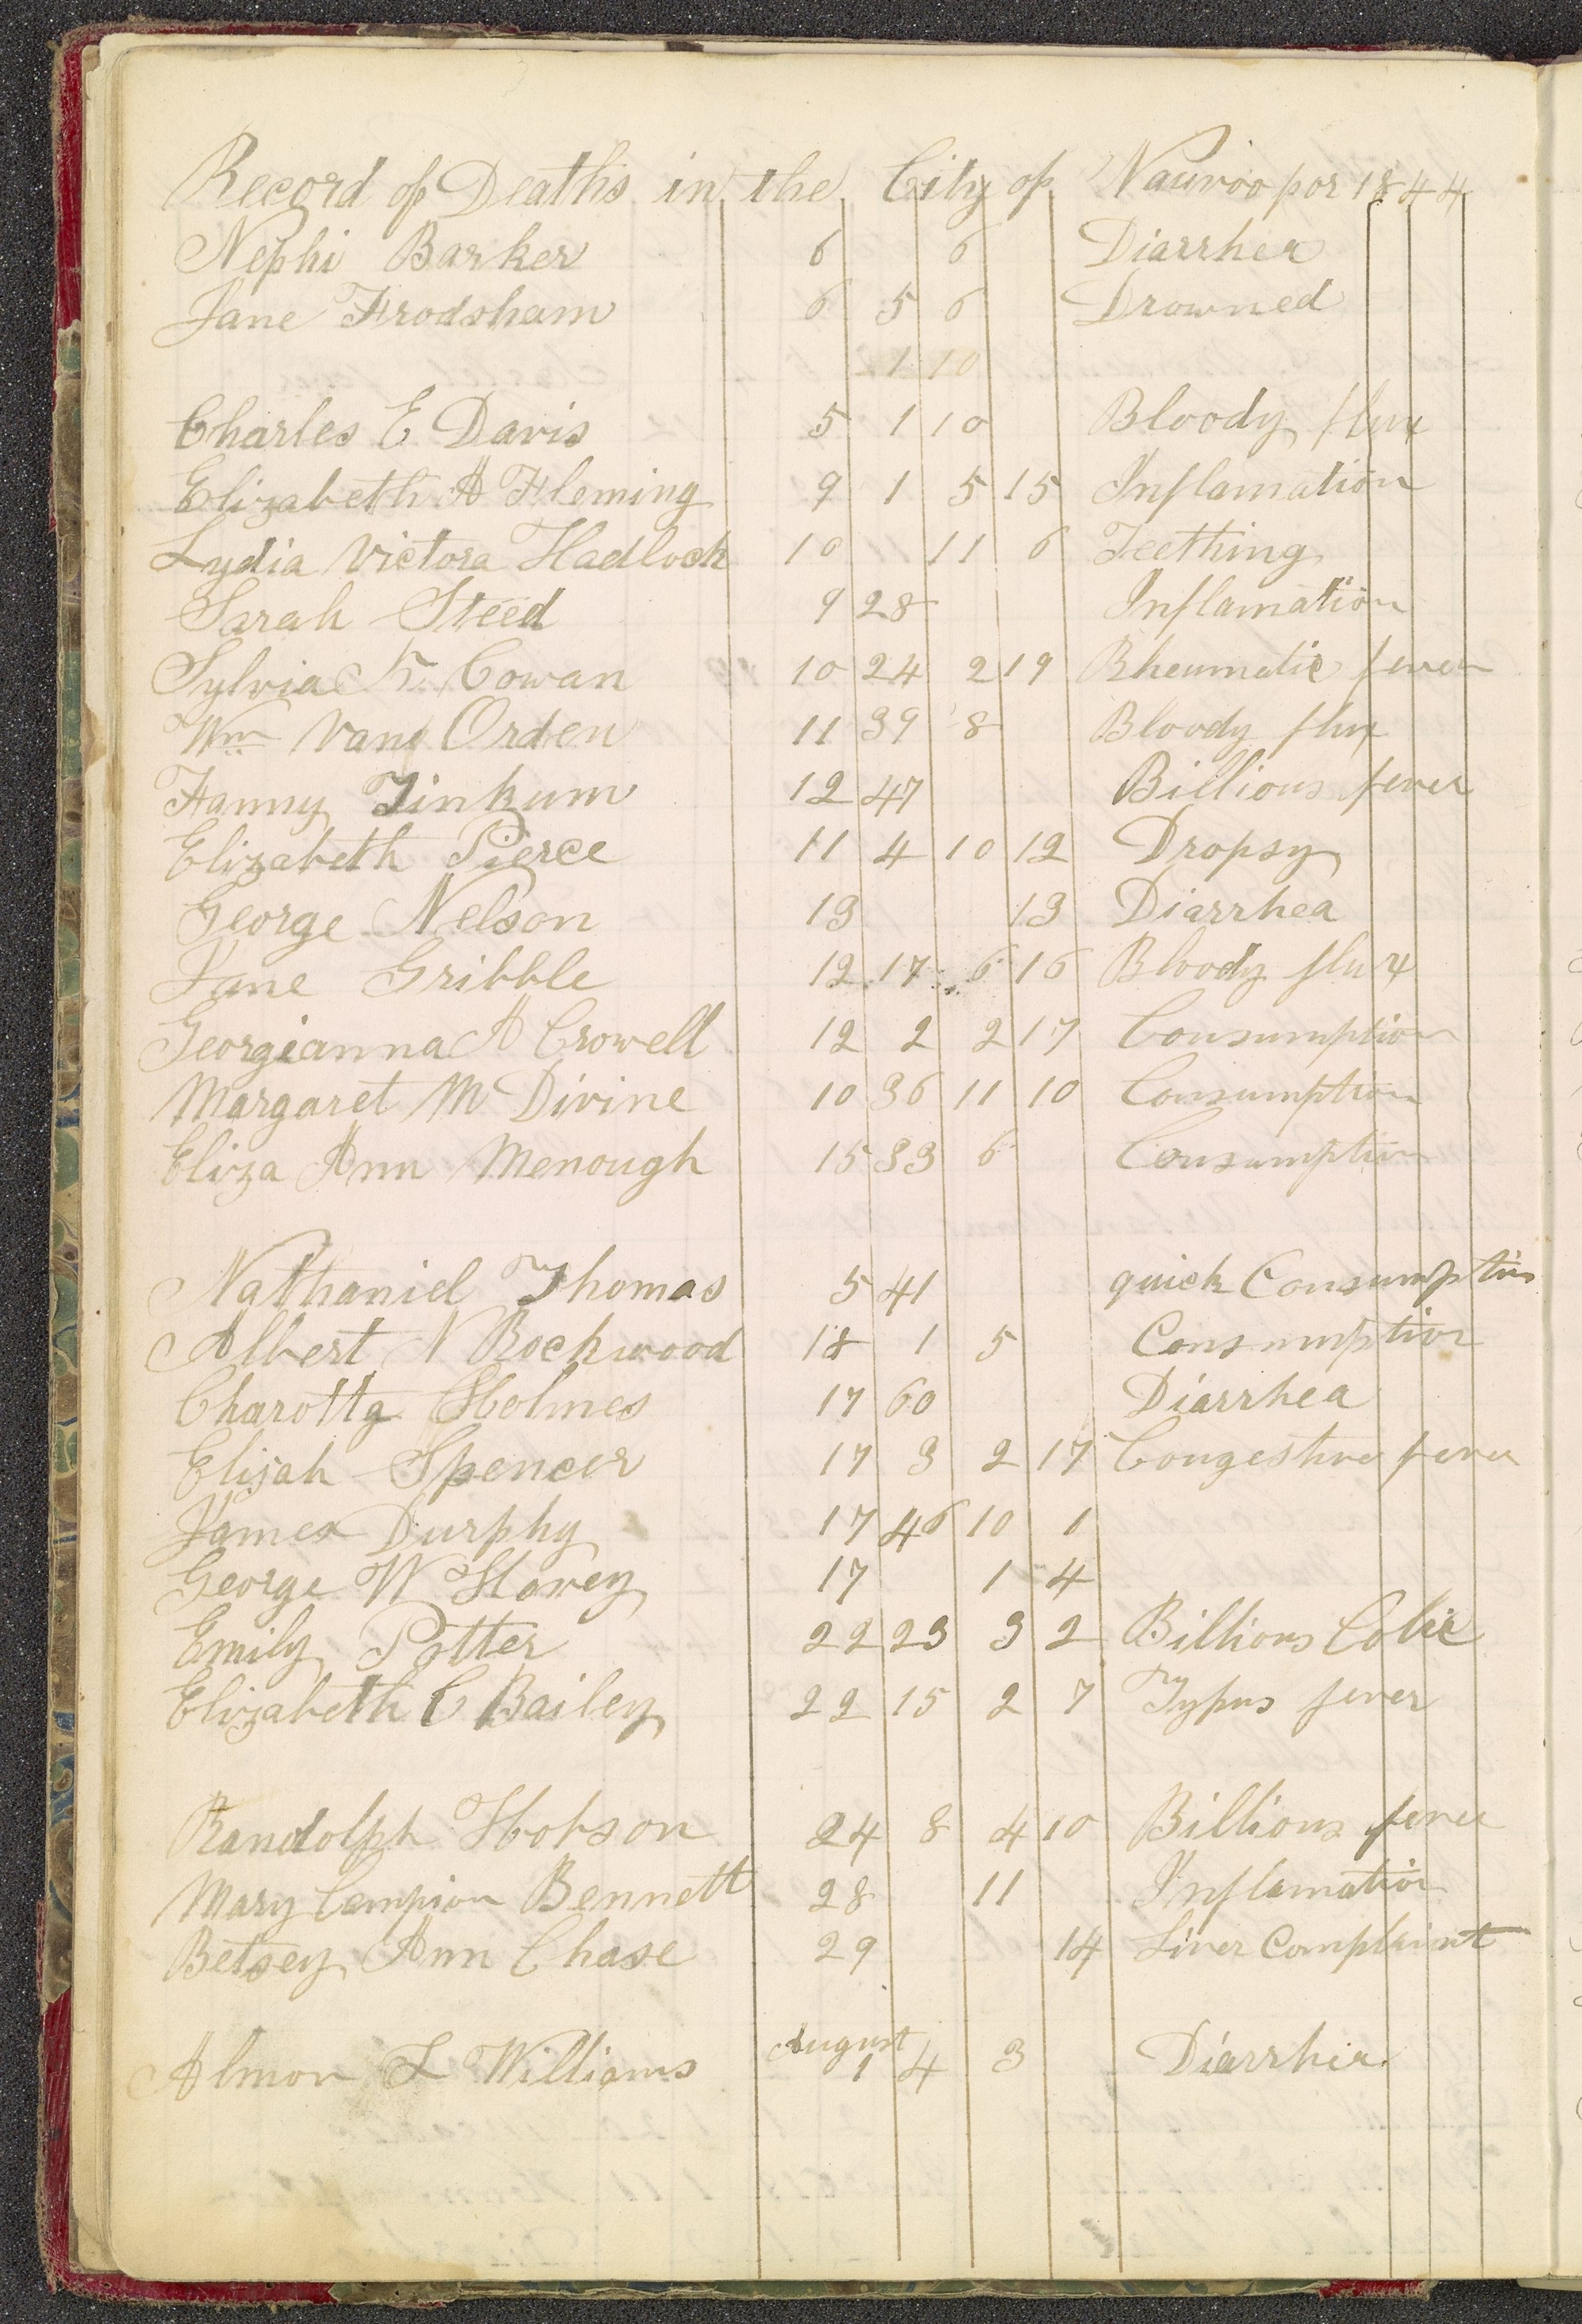 Record of Deaths in the City of Nauvoo for 1844
Nephi Barker 6 6 Diarrhea
Jane Frodsham 6 5 6 Drowned
1 10
Charles E Davis 5 1 10 Bloody flux
Elizabeth A Fleming 9 1 5 15 Inflamation
Lydia Victora Hadlock 10 11 6 Teething
Sarah Steed 9 28 Inflamation
Sylvia K Cowan 10 24 2 19 Rheumatic fever
Wm Vane Orden 11 39 8 Bloody flux
Fanny Tinkum 12 47 Billious fever
Elizabeth Pierce 11 4 10 12 Dropsy
George Nelson 13 13 Diarrhea
Jane Gribble 12 17 6 16 Bloody flux
Georgianna A Crowell 12 2 2 17 Consumption
Margaret M Divine 10 36 11 10 Consumption
Eliza Ann Menough 15 33 6 Consumption
Nathaniel Thomas 5 41 quick Consumption
Albert N Rockwood 18 1 5 Consumption
Charotta Holmes 17 60 Diarrhea
Elijah Spencer 17 3 2 17 Congestive fever
James Durphy 17 46 10 1
George W Hovey 17 1 4
Emily Potter 22 23 3 2 Billions Colic
Elizabeth C Bailey 22 15 2 7 Typus fever
Randolph Hobson 24 8 4 10 Billious fever
Mary Campion Bennett 28 11 Inflamation
Betsey Ann Chase 29 14 Liver Complaint
Almon L Williams August 1 4 3 Diarrhea